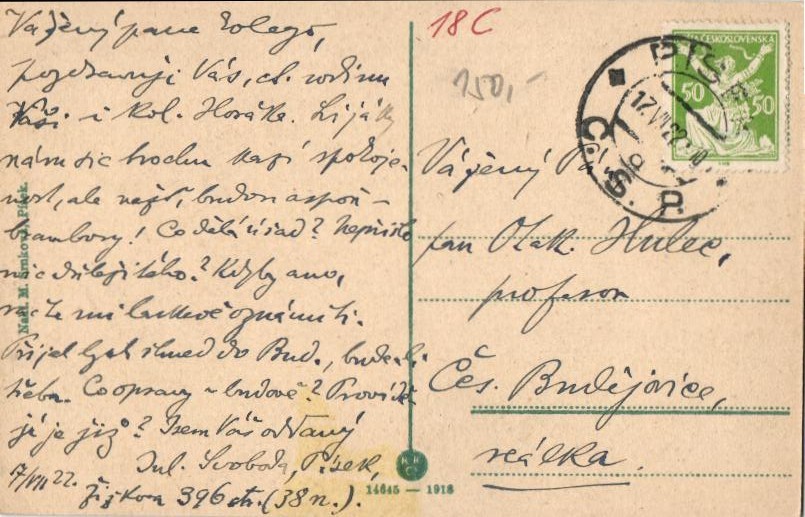 Vážený pane kolego,
pozdravuji Vás, ct. rodinu
Vaši i kol. Horáka. Lijáky
nám sic trochu kazí spokoje-
nost, ale nejsú, budou aspoň
brambory! Co dělá úřad? Nepřišlo
nic důležitého? Kdyby ano,
račte mi laskavě oznámiti.
Přijel bych ihned do Bud., bude-li
třeba. Co opravy v budově? Provádě-
jí je již? Jsem Váš oddaný
Jul. Svoboda, Písek,
7/VII 22. Žižkova 396 str. (38 n.).
Nakl. M. Písek.
18 C
150,-
ČESKOSLOVENSKÁ
50 50
PÍSEK
17.VII.22
Č.S.R.
Vážený Pá
pan Otak. Hulec,
profesor
Čes. Budějovice,
reálka.
14645 — 1918